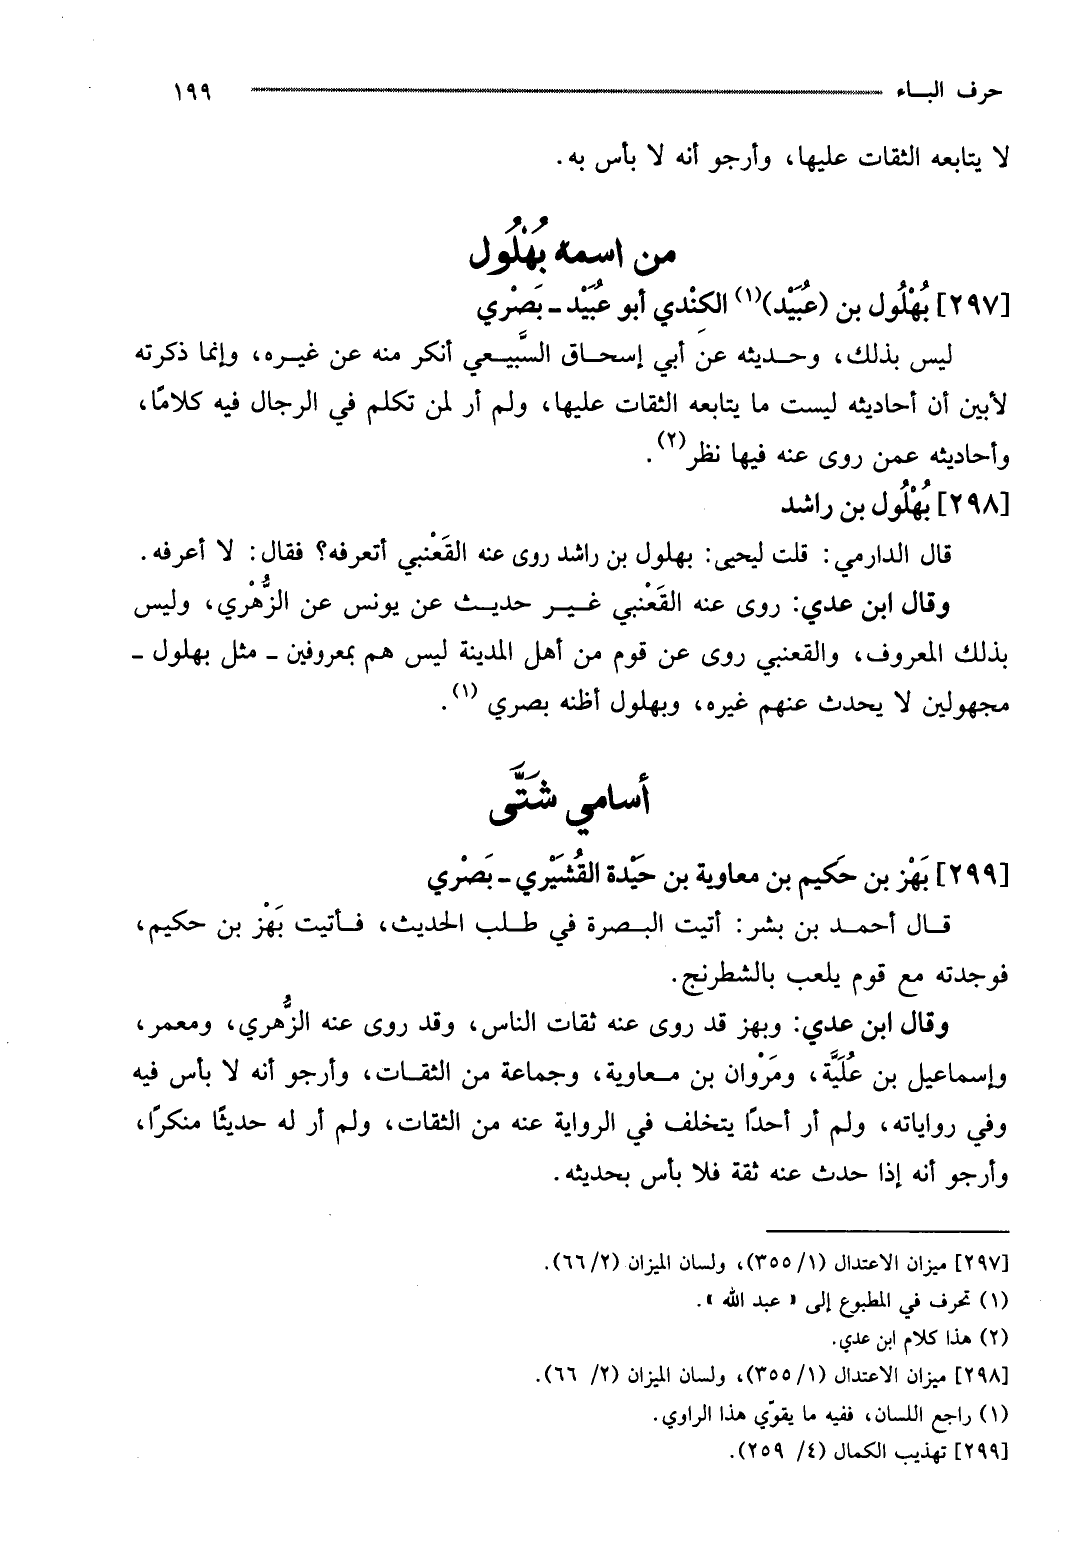 حرف البـاء ١٩٩
لا يتابعه الثقات عليها، وأرجو أنه لا بأس به.
من اسمه بُهْلُول
[٢٩٧] بُهْلُول بن (عُبَيْد)(١) الكِنْدي أبو عُبَيْد ـ بَصْري
ليس بذلك، وحـديثه عن أبي إسحـاق السَّبيـعي أنكر منه عن غيـره، وإنما ذكرته
لأبين أن أحاديثه ليست ما يتابعه الثقات عليها، ولم أر لمن تكلم في الرجال فيه كلامًا،
وأحاديثه عمن روى عنه فيها نظر(٢).
[٢٩٨] بُهْلُول بن راشد
قال الدارمي: قلت ليحيى: بهلول بن راشد روى عنه القَعْنبي أتعرفه؟ فقال: لا أعرفه.
وقال ابن عدي: روى عنه القَعْنبي غـيـر حديـث عن يونس عن الزُّهْري، وليس
بذلك المعروف، والقعنبي روى عن قوم من أهل المدينة ليس هم بمعروفين ـ مثل بهلول ـ
مجهولين لا يحدث عنهم غيره، وبهلول أظنه بصري (١).
أسامي شَتَّى
[٢٩٩] بَهْز بن حَكيم بن معاوية بن حَيْدة القُشَيْري ـ بَصْري
قـال أحمـد بن بشر: أتيت البـصرة في طـلب الحديث، فـأتيت بَهْز بن حكيم،
فوجدته مع قوم يلعب بالشطرنج.
وقال ابن عدي: وبهز قد روى عنه ثقات الناس، وقد روى عنه الزُّهري، ومعمر،
وإسماعيل بن عُلَيَّة، ومَرْوان بن مـعاوية، وجماعة من الثقـات، وأرجو أنه لا بأس فيه
وفي رواياته، ولم أر أحدًا يتخلف في الرواية عنه من الثقات، ولم أر له حديثًا منكرًا،
وأرجو أنه إذا حدث عنه ثقة فلا بأس بحديثه.
[٢٩٧] ميزان الاعتدال (١/ ٣٥٥)، ولسان الميزان (٢/ ٦٦).
(١) تحرف في المطبوع إلى « عبد الله ».
(٢) هذا كلام ابن عدي.
[٢٩٨] ميزان الاعتدال (١/ ٣٥٥)، ولسان الميزان (٢/ ٦٦).
(١) راجع اللسان، ففيه ما يقوّي هذا الراوي.
[٢٩٩] تهذيب الكمال (٤/ ٢٥٩).